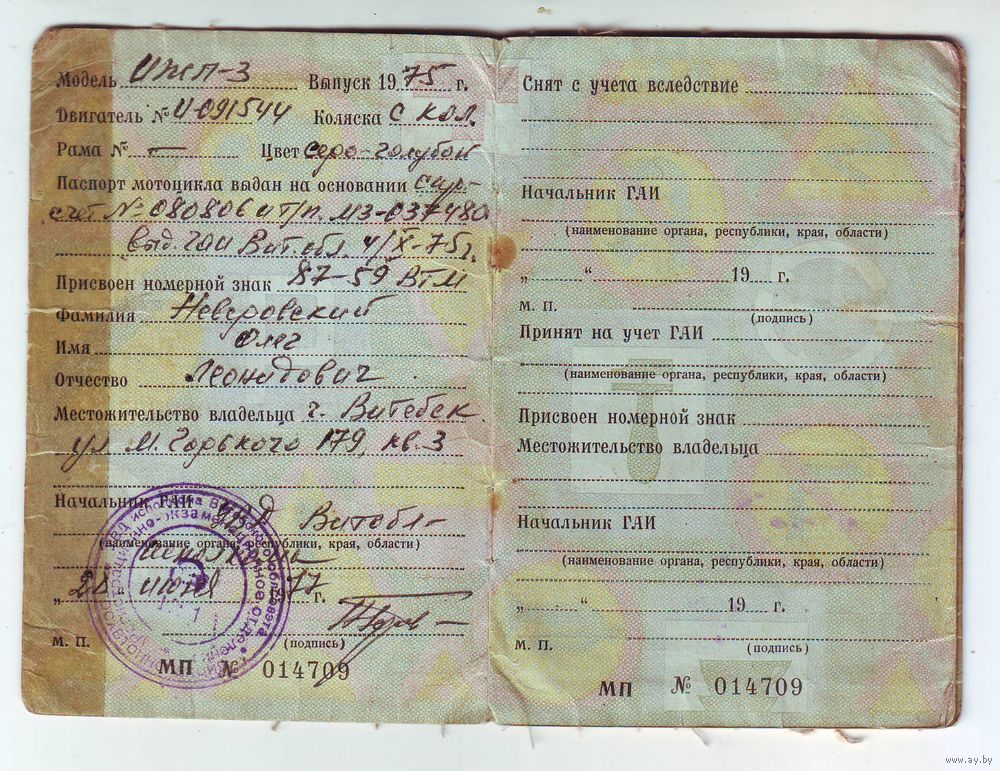 Модель ИЖП-3 Выпуск 1975 г.
Двигатель № И-091544 Коляска с кол.
Рама № — Цвет серо-голубой
Паспорт мотоцикла выдан на основании
счет № 080806 и т/п. МЗ-037480
выд. ГАИ Вит. обл. 4/X-75г.
Присвоен номерной знак 87-59 ВТМ
Фамилия Неверовский
Имя Олег
Отчество Леонидович
Местожительство владельца г. Витебск
ул М. Горького 179, кв. 3
Начальник ГАИ УВД Витебл-
(наименование органа, республики, края, области)
исполкома
„28 июля 1977 г.
М. П. (подпись)
МП № 014709
Снят с учета вследствие
Начальник ГАИ
(наименование органа, республики, края, области)
„ “ 19 г.
М. П. (подпись)
Принят на учет ГАИ
(наименование органа, республики, края, области)
Присвоен номерной знак
Местожительство владельца
Начальник ГАИ
(наименование органа, республики, края, области)
„ “ 19 г.
М. П. (подпись)
МП № 014709
www.ay.by